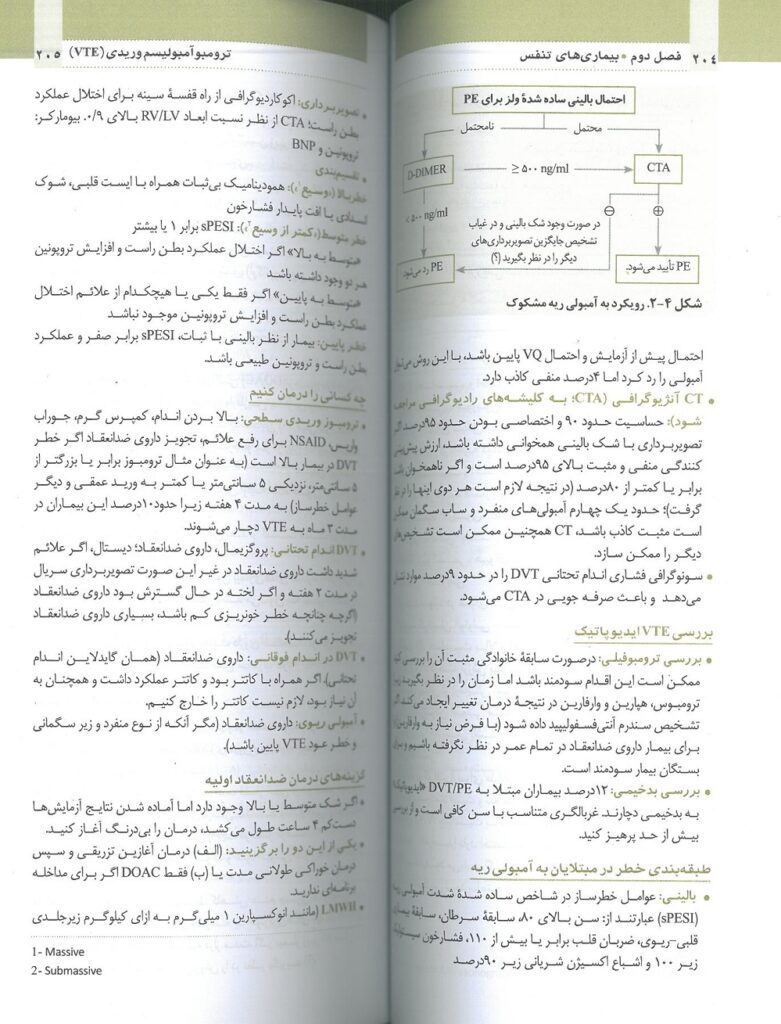 ۲۰۴ فصل دوم • بیماری‌های تنفس
احتمال بالینی ساده شدهٔ ولز برای PE
محتمل
نامحتمل
CTA
≥ ۵۰۰ ng/ml
D-DIMER
< ۵۰۰ ng/ml
⊕
⊖
در صورت وجود شک بالینی و در غیاب
تشخیص جایگزین تصویربرداری‌های
دیگر را در نظر بگیرید (؟)
PE تأیید می‌شود.
PE رد می‌شود.
شکل ۴-۲. رویکرد به آمبولی ریه مشکوک
احتمال پیش از آزمایش و احتمال VQ پایین باشد، با این روش می‌توان
آمبولی را رد کرد اما ۴درصد منفی کاذب دارد.
• CT آنژیوگرافی (CTA؛ به کلیشه‌های رادیوگرافی مراجعه
شود): حساسیت حدود ۹۰ و اختصاصی بودن حدود ۹۵درصد اگر
تصویربرداری با شک بالینی همخوانی داشته باشد، ارزش پیش‌بینی
کنندگی منفی و مثبت بالای ۹۵درصد است و اگر ناهمخوان باشد
برابر یا کمتر از ۸۰درصد (در نتیجه لازم است هر دوی اینها را در نظر
گرفت)؛ حدود یک چهارم آمبولی‌های منفرد و ساب سگمان ممکن
است مثبت کاذب باشد، CT همچنین ممکن است تشخیص‌های
دیگر را ممکن سازد.
• سونوگرافی فشاری اندام تحتانی DVT را در حدود ۹درصد موارد نشان
می‌دهد و باعث صرفه جویی در CTA می‌شود.
بررسی VTE ایدیوپاتیک
• بررسی ترومبوفیلی: درصورت سابقهٔ خانوادگی مثبت آن را بررسی کنید
ممکن است این اقدام سودمند باشد اما زمان را در نظر بگیرید زیرا
ترومبوس، هپارین و وارفارین در نتیجهٔ درمان تغییر ایجاد می‌کند اگر
تشخیص سندرم آنتی‌فسفولیپید داده شود (با فرض نیاز به وارفارین)
برای بیمار داروی ضدانعقاد در تمام عمر در نظر نگرفته باشیم و برای
بستگان بیمار سودمند است.
• بررسی بدخیمی: ۱۲درصد بیماران مبتلا به DVT/PE «ایدیوپاتیک»
به بدخیمی دچارند. غربالگری متناسب با سن کافی است و از بررسی
بیش از حد پرهیز کنید.
طبقه‌بندی خطر در مبتلایان به آمبولی ریه
• بالینی: عوامل خطرساز در شاخص ساده شدهٔ شدت آمبولی ریه
(sPESI) عبارتند از: سن بالای ۸۰، سابقهٔ سرطان، سابقهٔ بیماری
قلبی-ریوی، ضربان قلب برابر یا بیش از ۱۱۰، فشارخون سیستولیک
زیر ۱۰۰ و اشباع اکسیژن شریانی زیر ۹۰درصد
ترومبوآمبولیسم وریدی (VTE) ۲۰۵
• تصویربرداری: اکوکاردیوگرافی از راه قفسهٔ سینه برای اختلال عملکرد
بطن راست؛ CTA از نظر نسبت ابعاد RV/LV بالای ۰/۹. بیومارکر:
تروپونین و BNP
• تقسیم‌بندی
خطر بالا («وسیع¹»): همودینامیک بی‌ثبات همراه با ایست قلبی، شوک
انسدادی یا افت پایدار فشارخون
خطر متوسط («کمتر از وسیع²»): sPESI برابر ۱ یا بیشتر
«متوسط به بالا» اگر اختلال عملکرد بطن راست و افزایش تروپونین
هر دو وجود داشته باشد
«متوسط به پایین» اگر فقط یکی یا هیچکدام از علائم اختلال
عملکرد بطن راست و افزایش تروپونین موجود نباشد
خطر پایین: بیمار از نظر بالینی با ثبات، sPESI برابر صفر و عملکرد
بطن راست و تروپونین طبیعی باشد.
چه کسانی را درمان کنیم
• ترومبوز وریدی سطحی: بالا بردن اندام، کمپرس گرم، جوراب
واریس، NSAID برای رفع علائم، تجویز داروی ضدانعقاد اگر خطر
DVT در بیمار بالا است (به عنوان مثال ترومبوز برابر یا بزرگتر از
۵ سانتی‌متر، نزدیکی ۵ سانتی‌متر یا کمتر به ورید عمقی و دیگر
عوامل خطرساز) به مدت ۴ هفته زیرا حدود۱۰درصد این بیماران در
مدت ۳ ماه به VTE دچار می‌شوند.
• DVT اندام تحتانی: پروگزیمال، داروی ضدانعقاد؛ دیستال، اگر علائم
شدید داشت داروی ضدانعقاد در غیر این صورت تصویربرداری سریال
در مدت ۲ هفته و اگر لخته در حال گسترش بود داروی ضدانعقاد
(اگرچه چنانچه خطر خونریزی کم باشد، بسیاری داروی ضدانعقاد
تجویز می‌کنند).
• DVT در اندام فوقانی: داروی ضدانعقاد (همان گایدلاین اندام
تحتانی). اگر همراه با کاتتر بود و کاتتر عملکرد داشت و همچنان به
آن نیاز بود، لازم نیست کاتتر را خارج کنیم.
• آمبولی ریوی: داروی ضدانعقاد (مگر آنکه از نوع منفرد و زیر سگمانی
و خطر عود VTE پایین باشد).
گزینه‌های درمان ضدانعقاد اولیه
• اگر شک متوسط یا بالا وجود دارد اما آماده شدن نتایج آزمایش‌ها
دست‌کم ۴ ساعت طول می‌کشد، درمان را بی‌درنگ آغاز کنید.
• یکی از این دو را برگزینید: (الف) درمان آغازین تزریقی و سپس
درمان خوراکی طولانی مدت یا (ب) فقط DOAC اگر برای مداخله
برنامه‌ای ندارید.
• LMWH (مانند انوکسپارین ۱ میلی‌گرم به ازای کیلوگرم زیرجلدی
1- Massive
2- Submassive